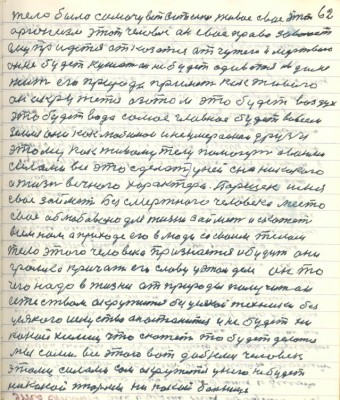 тело было самочувственно живое свое это 62
организм этот человек он свое право завоюет
ему придется отказаться от чужого и мертвого
он не будет кушать он не будет одеваться и в доме
жить его природа примет как живого
он окружится азотом это будет воздух
это будет вода самое главное будет
земля они как молодой и неумирающей друзья
этому как живому телу помогут своими
силами все это сделать у ней сна никакого
а жизнь вечного характера Паршек имя
свое займет бессмертного человека место
свое облюбованно для жизни займет и скажет
всем нам о приходе его в люди со своим телом
тело этого человека признается и будут они
громко кричать его славу у этом деле он то
чего надо в жизни от природы получит он
естеством окружится без всякой техники без
всякого искусства он останется и не будет ни
какой химии что скажете то будет делать
мы сами все этого вот добьемся человек
этими силами сам окружится у него не будет
никакой тюрьмы ни какой больницы